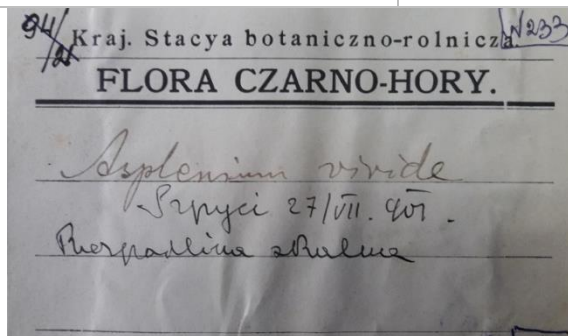 94/21 Kraj. Stacya botaniczno-rolnicza. N233
FLORA CZARNO-HORY.
Asplenium viride
Szpyci 27/VII. 901.
Rozpadlina skalna